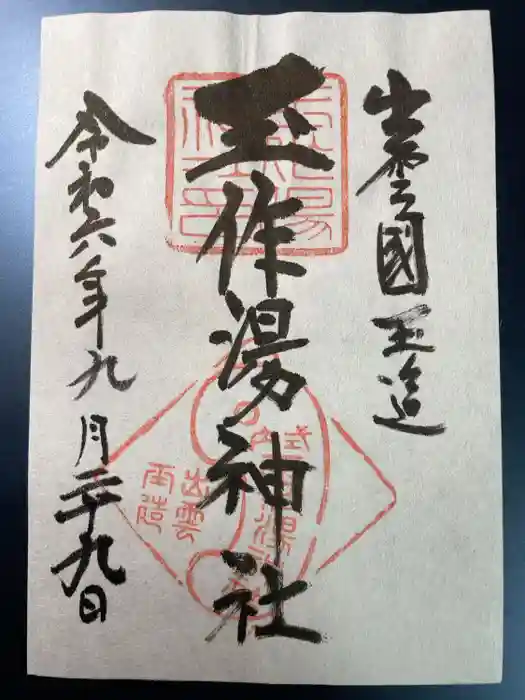 出雲國玉造
玉作湯神社
令和六年九月二十九日
玉作湯神社印
出雲
玉造